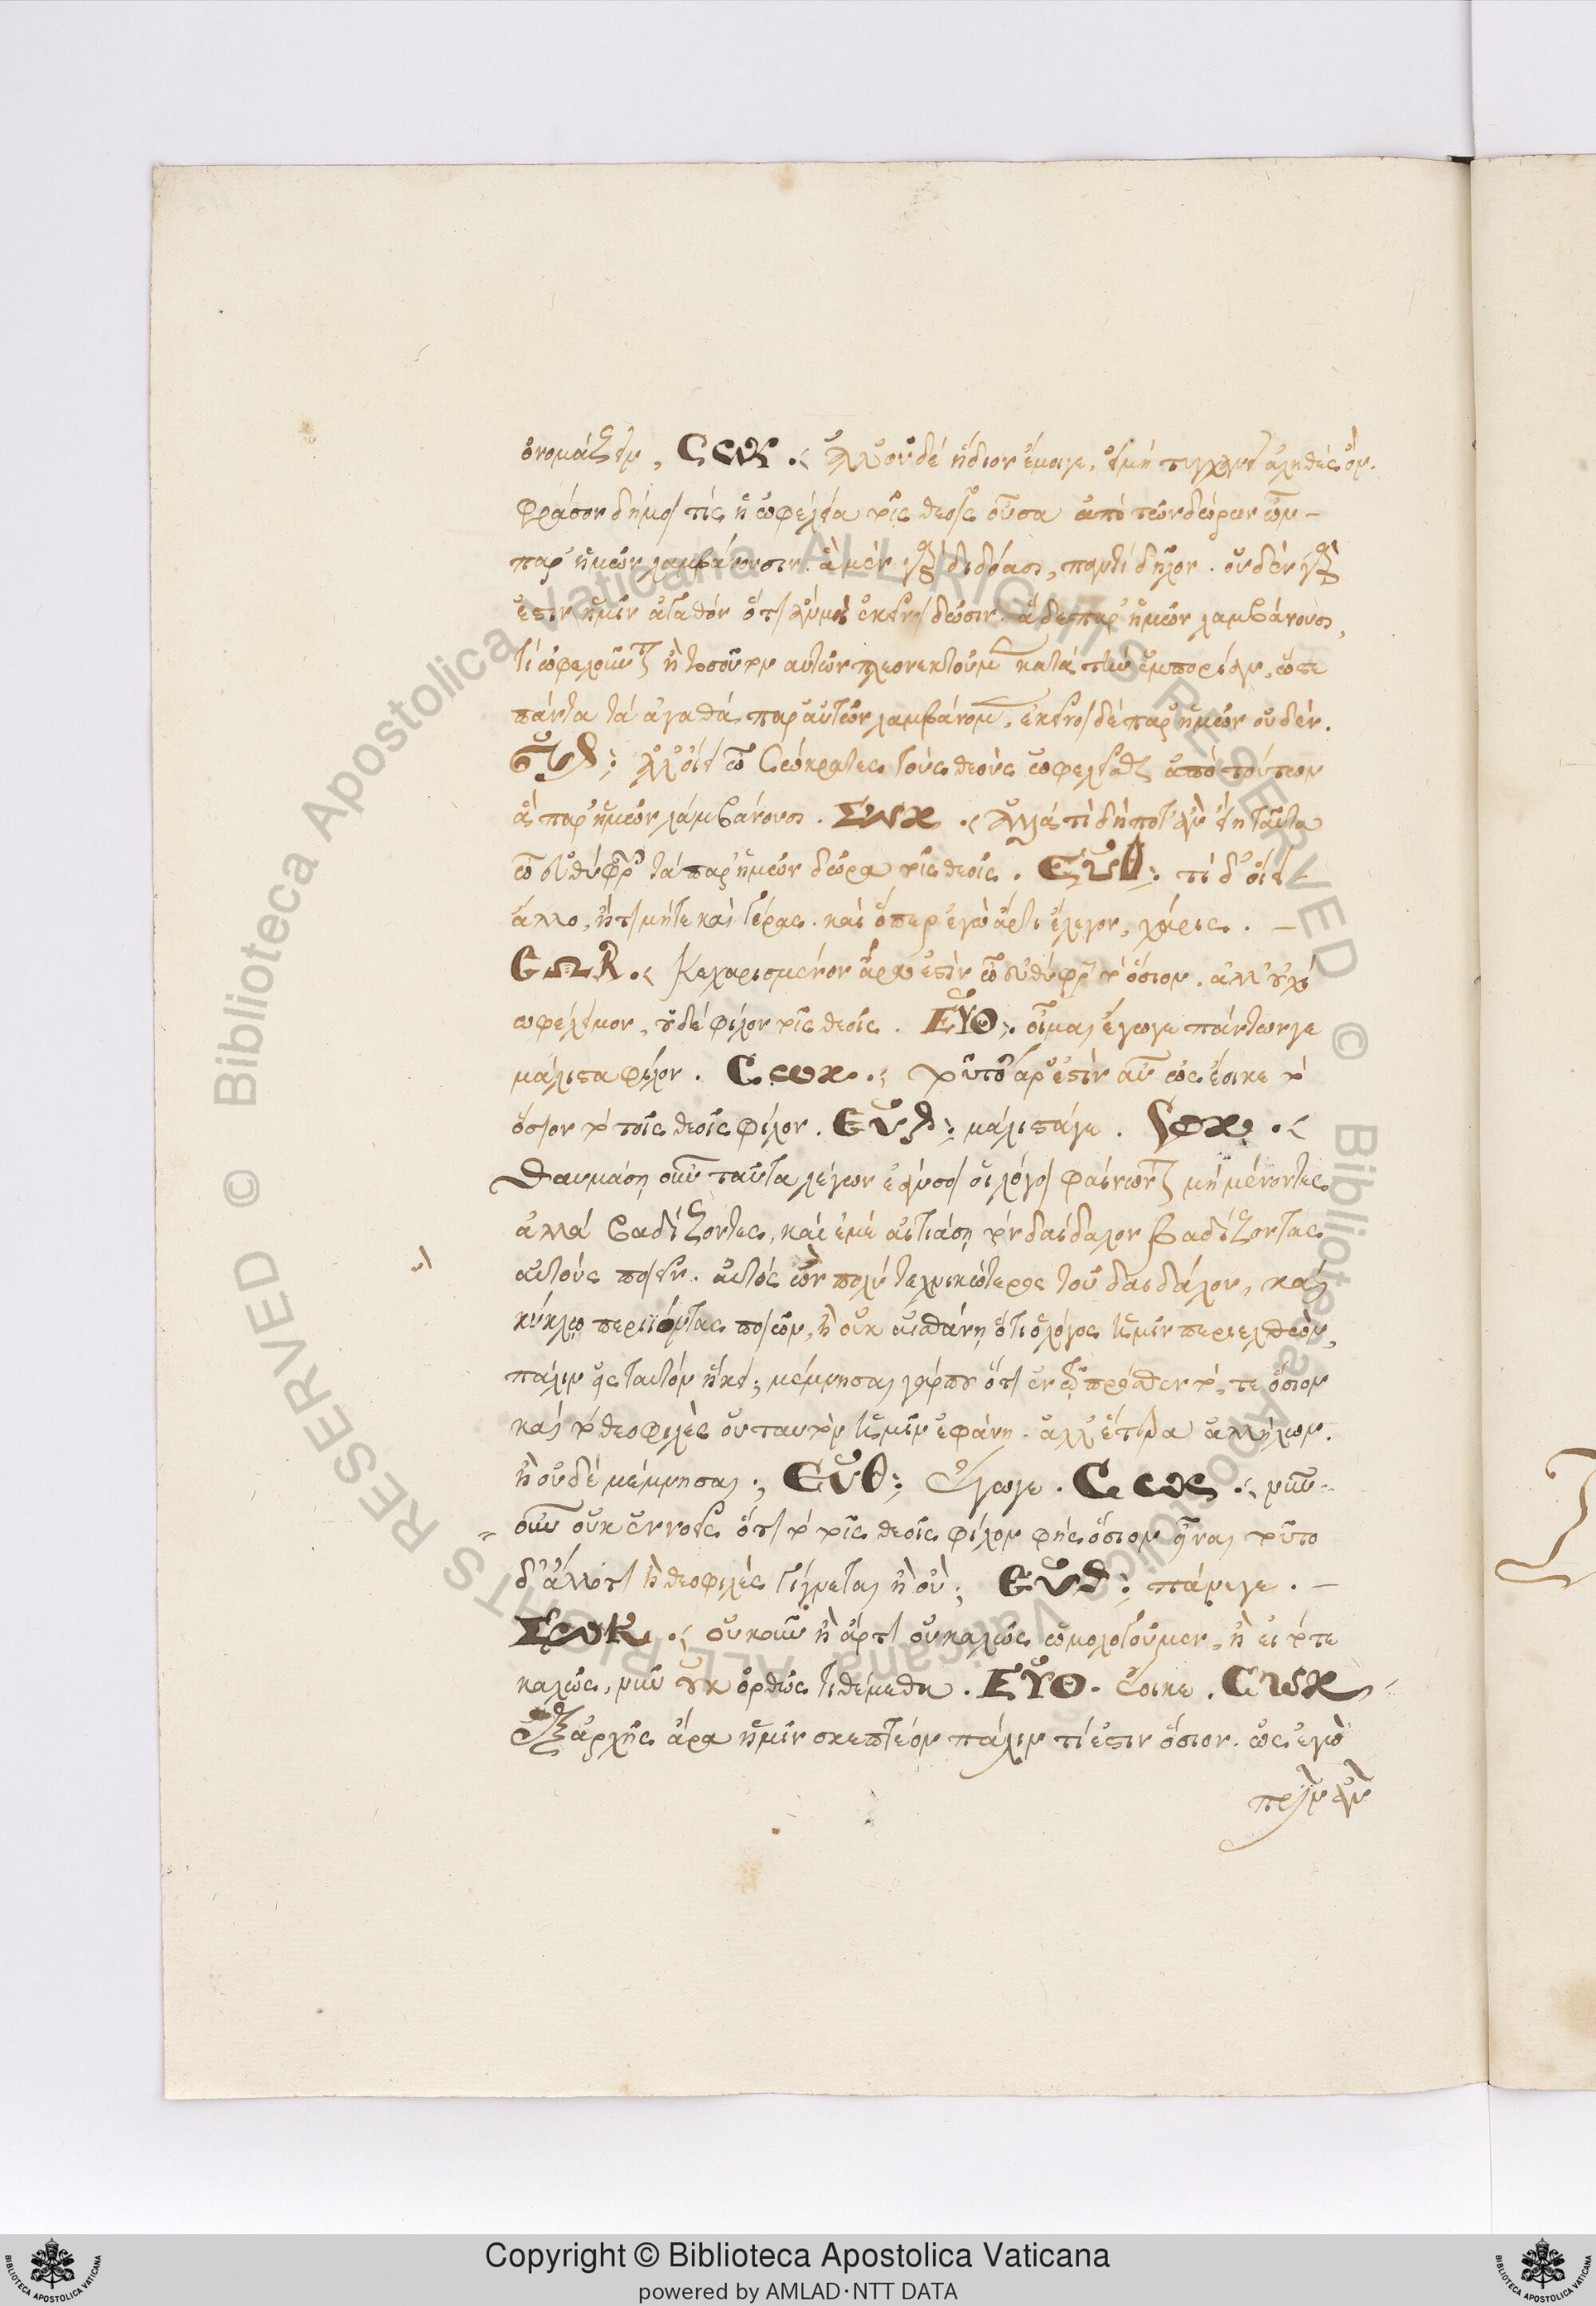 ὀνομάζειν. Σωκ. ἀλλ' οὐδὲ ἥδιον ἔμοιγε, εἰ μὴ τυγχάνει ἀληθὲς ὄν.
φράσον δή μοι τίς ἡ ὠφέλεια τοῖς θεοῖς οὖσα ἀπὸ τῶν δώρων ὧν
παρ' ἡμῶν λαμβάνουσιν. ἃ μὲν γὰρ διδόασι, παντὶ δῆλον. οὐδὲν γὰρ
ἐστὶν ἡμῖν ἀγαθὸν ὅτι ἂν μὴ ἐκεῖνοι δῶσιν. ἃ δὲ παρ' ἡμῶν λαμβάνουσι,
τί ὠφελοῦνται ἢ τοσοῦτον αὐτῶν πλεονεκτοῦμεν κατὰ τὴν ἐμπορίαν, ὥστε
πάντα τὰ ἀγαθὰ παρ' αὐτῶν λαμβάνομεν. ἐκεῖνοι δὲ παρ' ἡμῶν οὐδέν.
Εὐθ: ἀλλ' οἴει ὦ Σώκρατες τοὺς θεοὺς ὠφελεῖσθαι ἀπὸ τούτων
ἃ παρ' ἡμῶν λαμβάνουσι. Σωκ. ἀλλὰ τί δήποτ' ἂν εἴη ταῦτα
ὦ εὐθύφρον τὰ παρ' ἡμῶν δῶρα τοῖς θεοῖς. Εὐθ: τί δ' οἴει
ἄλλο, ἢ τιμή τε καὶ γέρας. καὶ ὅπερ ἐγὼ ἄρτι ἔλεγον, χάρις.
ΣΩΚ. Κεχαρισμένον ἄρα ἐστὶν ὦ εὐθύφρον τὸ ὅσιον. ἀλλ' οὐχὶ
ὠφέλιμον, οὐδὲ φίλον τοῖς θεοῖς. ΕΥΘ: οἶμαι ἔγωγε πάντων γε
μάλιστα φίλον. Σωκ. τοῦτο ἄρ' ἐστὶν αὖ ὡς ἔοικε τὸ
ὅσιον τὸ τοῖς θεοῖς φίλον. Εὐθ: μάλιστά γε. Σωκ.
Θαυμάσῃ οὖν ταῦτα λέγων ἐάν σοι οἱ λόγοι φαίνωνται μὴ μένοντες
ἀλλὰ βαδίζοντες, καὶ ἐμὲ αἰτιάσῃ τὸν δαίδαλον βαδίζοντας
αὐτοὺς ποιεῖν. αὐτὸς ὢν πολὺ τεχνικώτερος τοῦ δαιδάλου, καὶ
κύκλῳ περιϊόντας ποιῶν, ἢ οὐκ αἰσθάνῃ ὅτι ὁ λόγος ἡμῖν περιελθὼν,
πάλιν εἰς ταυτὸν ἥκει; μέμνησαι γάρ που ὅτι ἐν τῷ πρόσθεν τό, τε ὅσιον
καὶ τὸ θεοφιλὲς οὐ ταυτὸν ἡμῖν ἐφάνη. ἀλλ' ἕτερα ἀλλήλων.
ἢ οὐδὲ μέμνησαι; Εὐθ: ἔγωγε. Σωκ. νῦν
οὖν οὐκ ἐννοεῖς ὅτι τὸ τοῖς θεοῖς φίλον φῂς ὅσιον εἶναι τοῦτο
δ' ἄλλό τι ἢ θεοφιλὲς γίγνεται ἢ οὔ; Εὐθ: πάνυ γε.
Σωκ. οὐκοῦν ἢ ἄρτι οὐ καλῶς ὡμολογοῦμεν, ἢ εἰ τότε
καλῶς, νῦν οὐκ ὀρθῶς τιθέμεθα. ΕΥΘ. ἔοικε. Σωκ
ἐξ ἀρχῆς ἄρα ἡμῖν σκεπτέον πάλιν τί ἐστιν ὅσιον. ὡς ἐγὼ
πρὶν ἂν
Copyright © Biblioteca Apostolica Vaticana
powered by AMLAD·NTT DATA